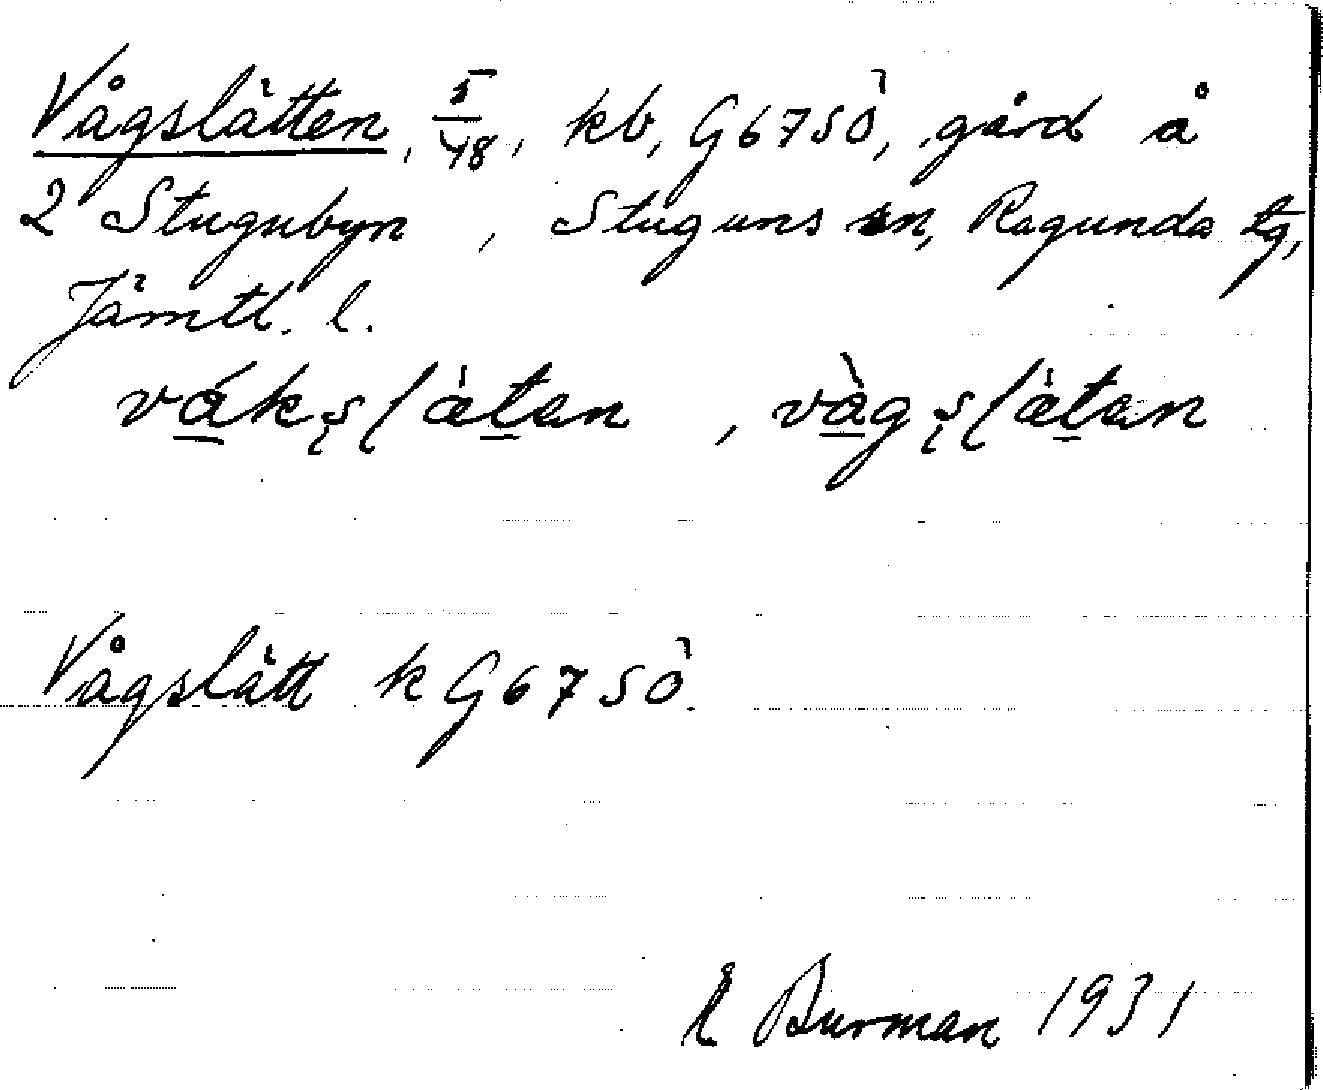 Vågslätten, 5/48, kb, G67SÖ, gård å
2 Stugubyn, Stuguns sn, Ragunda tg,
Jämtl. l.
vákslätan, vàgslätan
Vågslätt k G67SÖ.
E Burman 1931